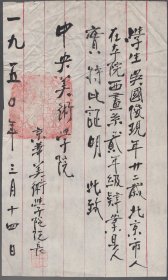 學生吳國俊現年廿二歲北京市人
在本院西畫系貳年級肄業是
實特此證明 此致
中央美術學院
京華美術學院院長
一九五〇年三月十四日